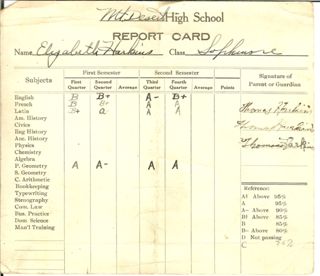 Mt Desert High School
REPORT CARD
Name Elizabeth Harkins Class Sophmore
Subjects First Semester Second Semester Signature of Parent or Guardian
First Quarter Second Quarter Average Third Quarter Fourth Quarter Average
English B B+ A- B+
French B B+ A A
Latin B+ a A A Thomas Harkins
Am. History
Civics Thomas Harkins
Eng History
Anc. History Thomas Harkins
Physics
Chemistry
Algebra
P. Geometry A A- A A
S. Geometry
C. Arithmetic
Bookkeeping
Typewriting
Stenography
Com. Law
Bus. Practice
Dom Science
Man'l Training
Reference:
A+ Above 98%
A 95%
A- Above 90%
B+ Above 85%
B 85%
B- Above 80%
D Not passing
C